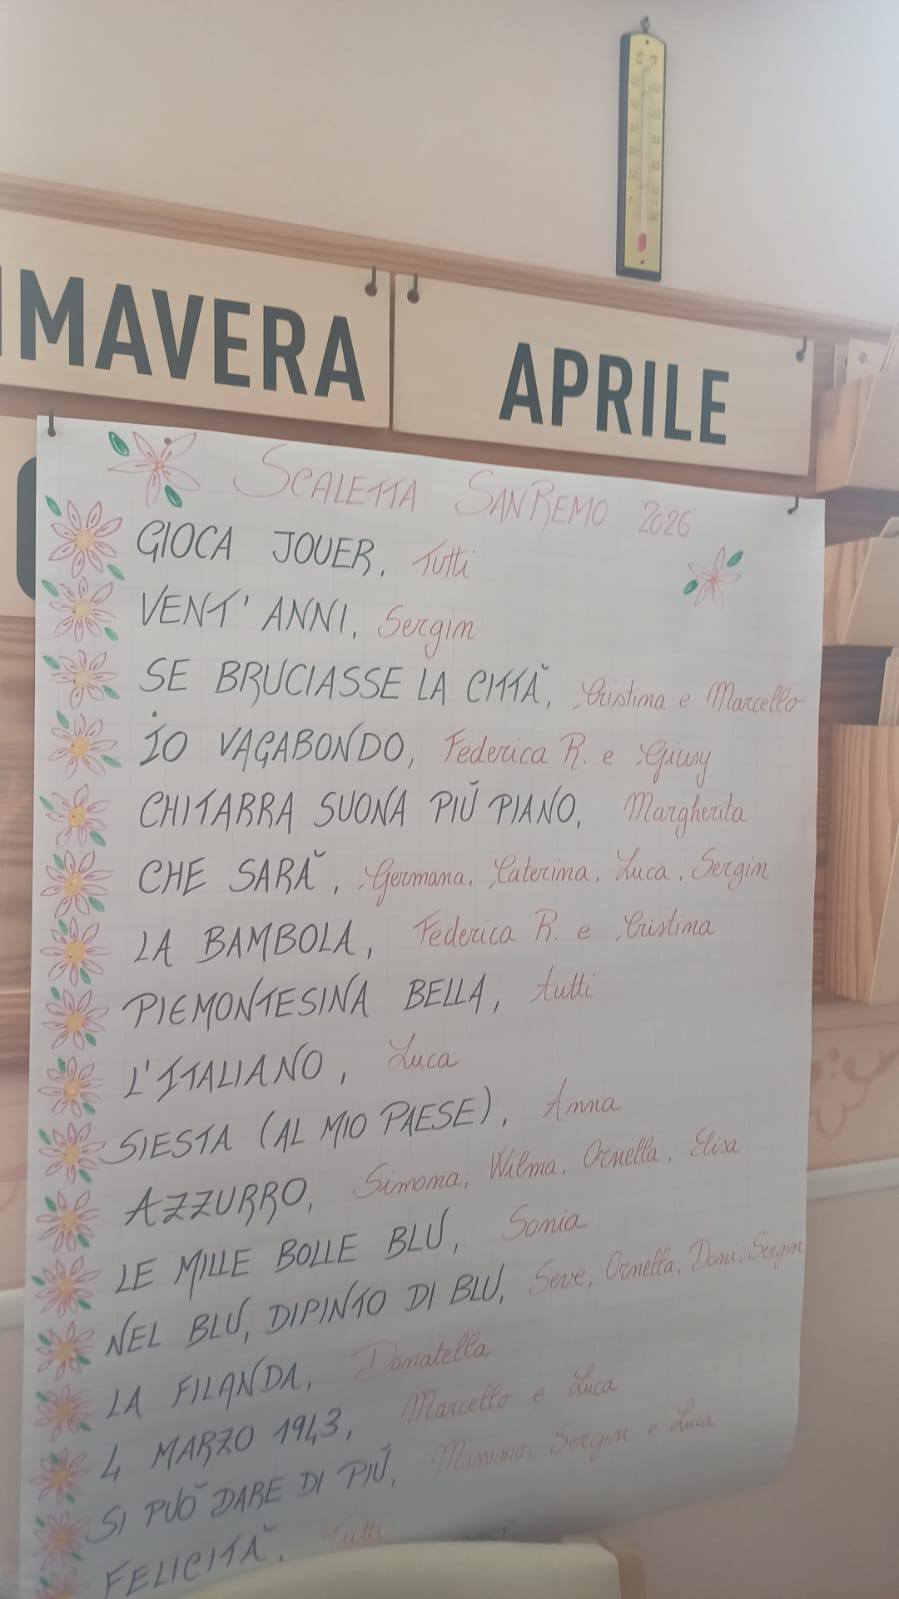 IMAVERA
APRILE
SCALETTA SANREMO 2026
GIOCA JOUER, Tutti
VENT' ANNI, Sergim
SE BRUCIASSE LA CITTĂ, Cristina e Marcello
IO VAGABONDO, Federica R. e Giusy
CHITARRA SUONA PIŬ PIANO, Margherita
CHE SARĂ, Germana, Caterina, Luca, Sergim
LA BAMBOLA, Federica R. e Cristina
PIEMONTESINA BELLA, tutti
L'ITALIANO, Luca
SIESTA (AL MIO PAESE), Anna
AZZURRO, Simona, Wilma, Ornella, Elisa
LE MILLE BOLLE BLU, Sonia
NEL BLU, DIPINTO DI BLU, Seve, Ornella, Dani, Sergim
LA FILANDA, Donatella
4 MARZO 1943, Marcello e Luca
SI PUŎ DARE DI PIŬ, Massimo, Sergim e Luca
FELICITĂ, Tutti